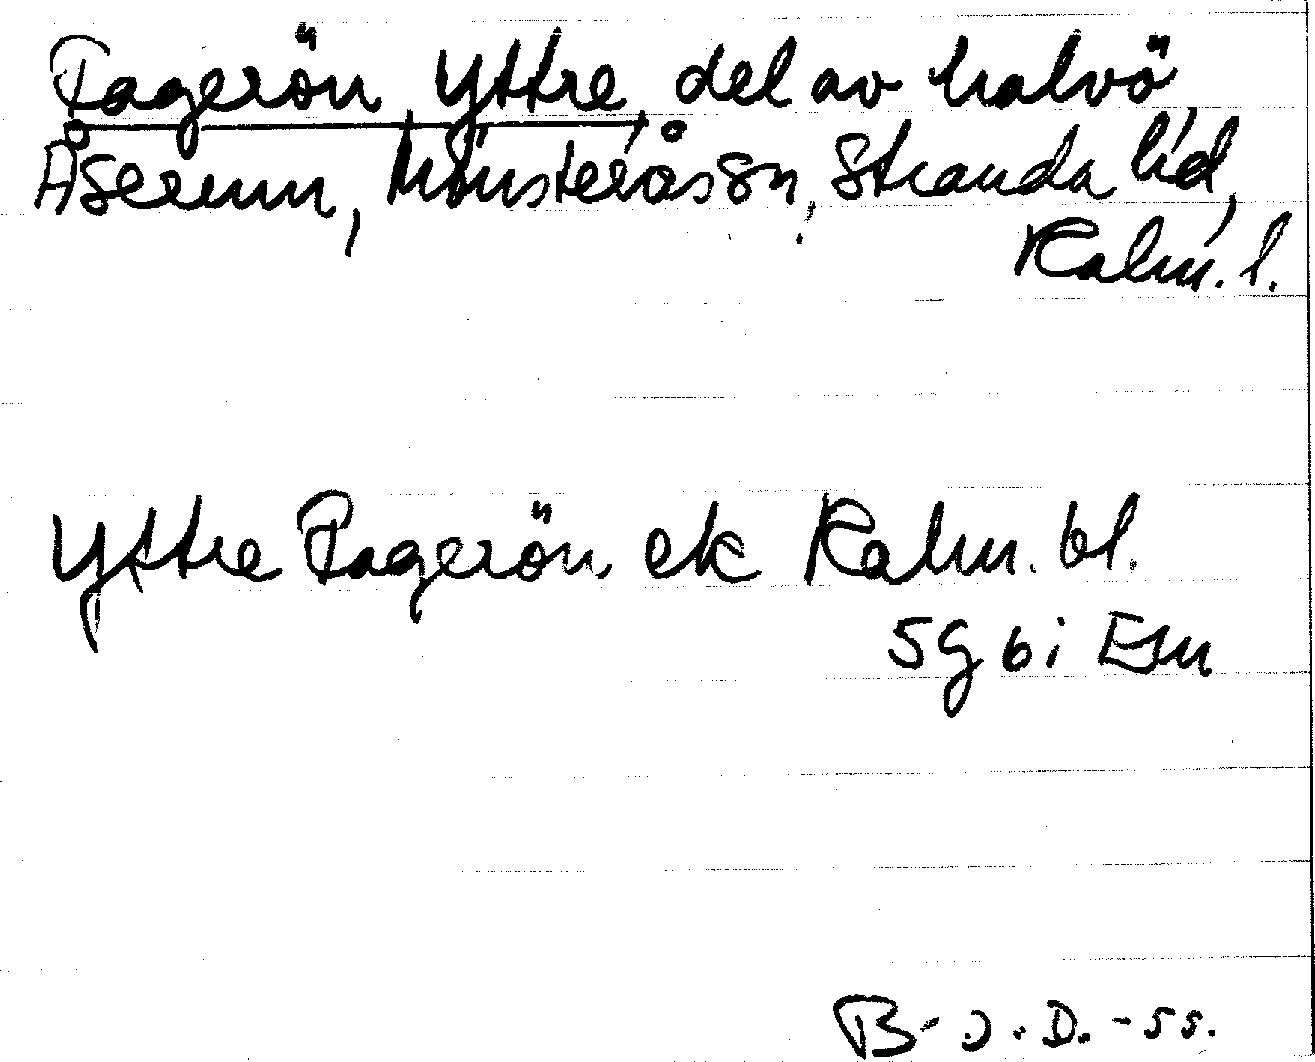 Fagerön, Yttre, del av halvö,
Åserum, Mönsterås sn, Stranda hd,
Kalm. l.
Yttre Fagerön ek Kalm. bl.
5G 6i Esn
B-J. D. -55.